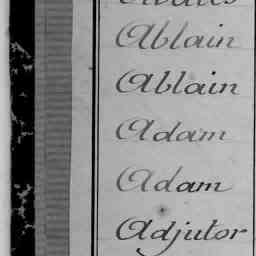 Ablain
Ablain
Adam
Adam
Adjutor